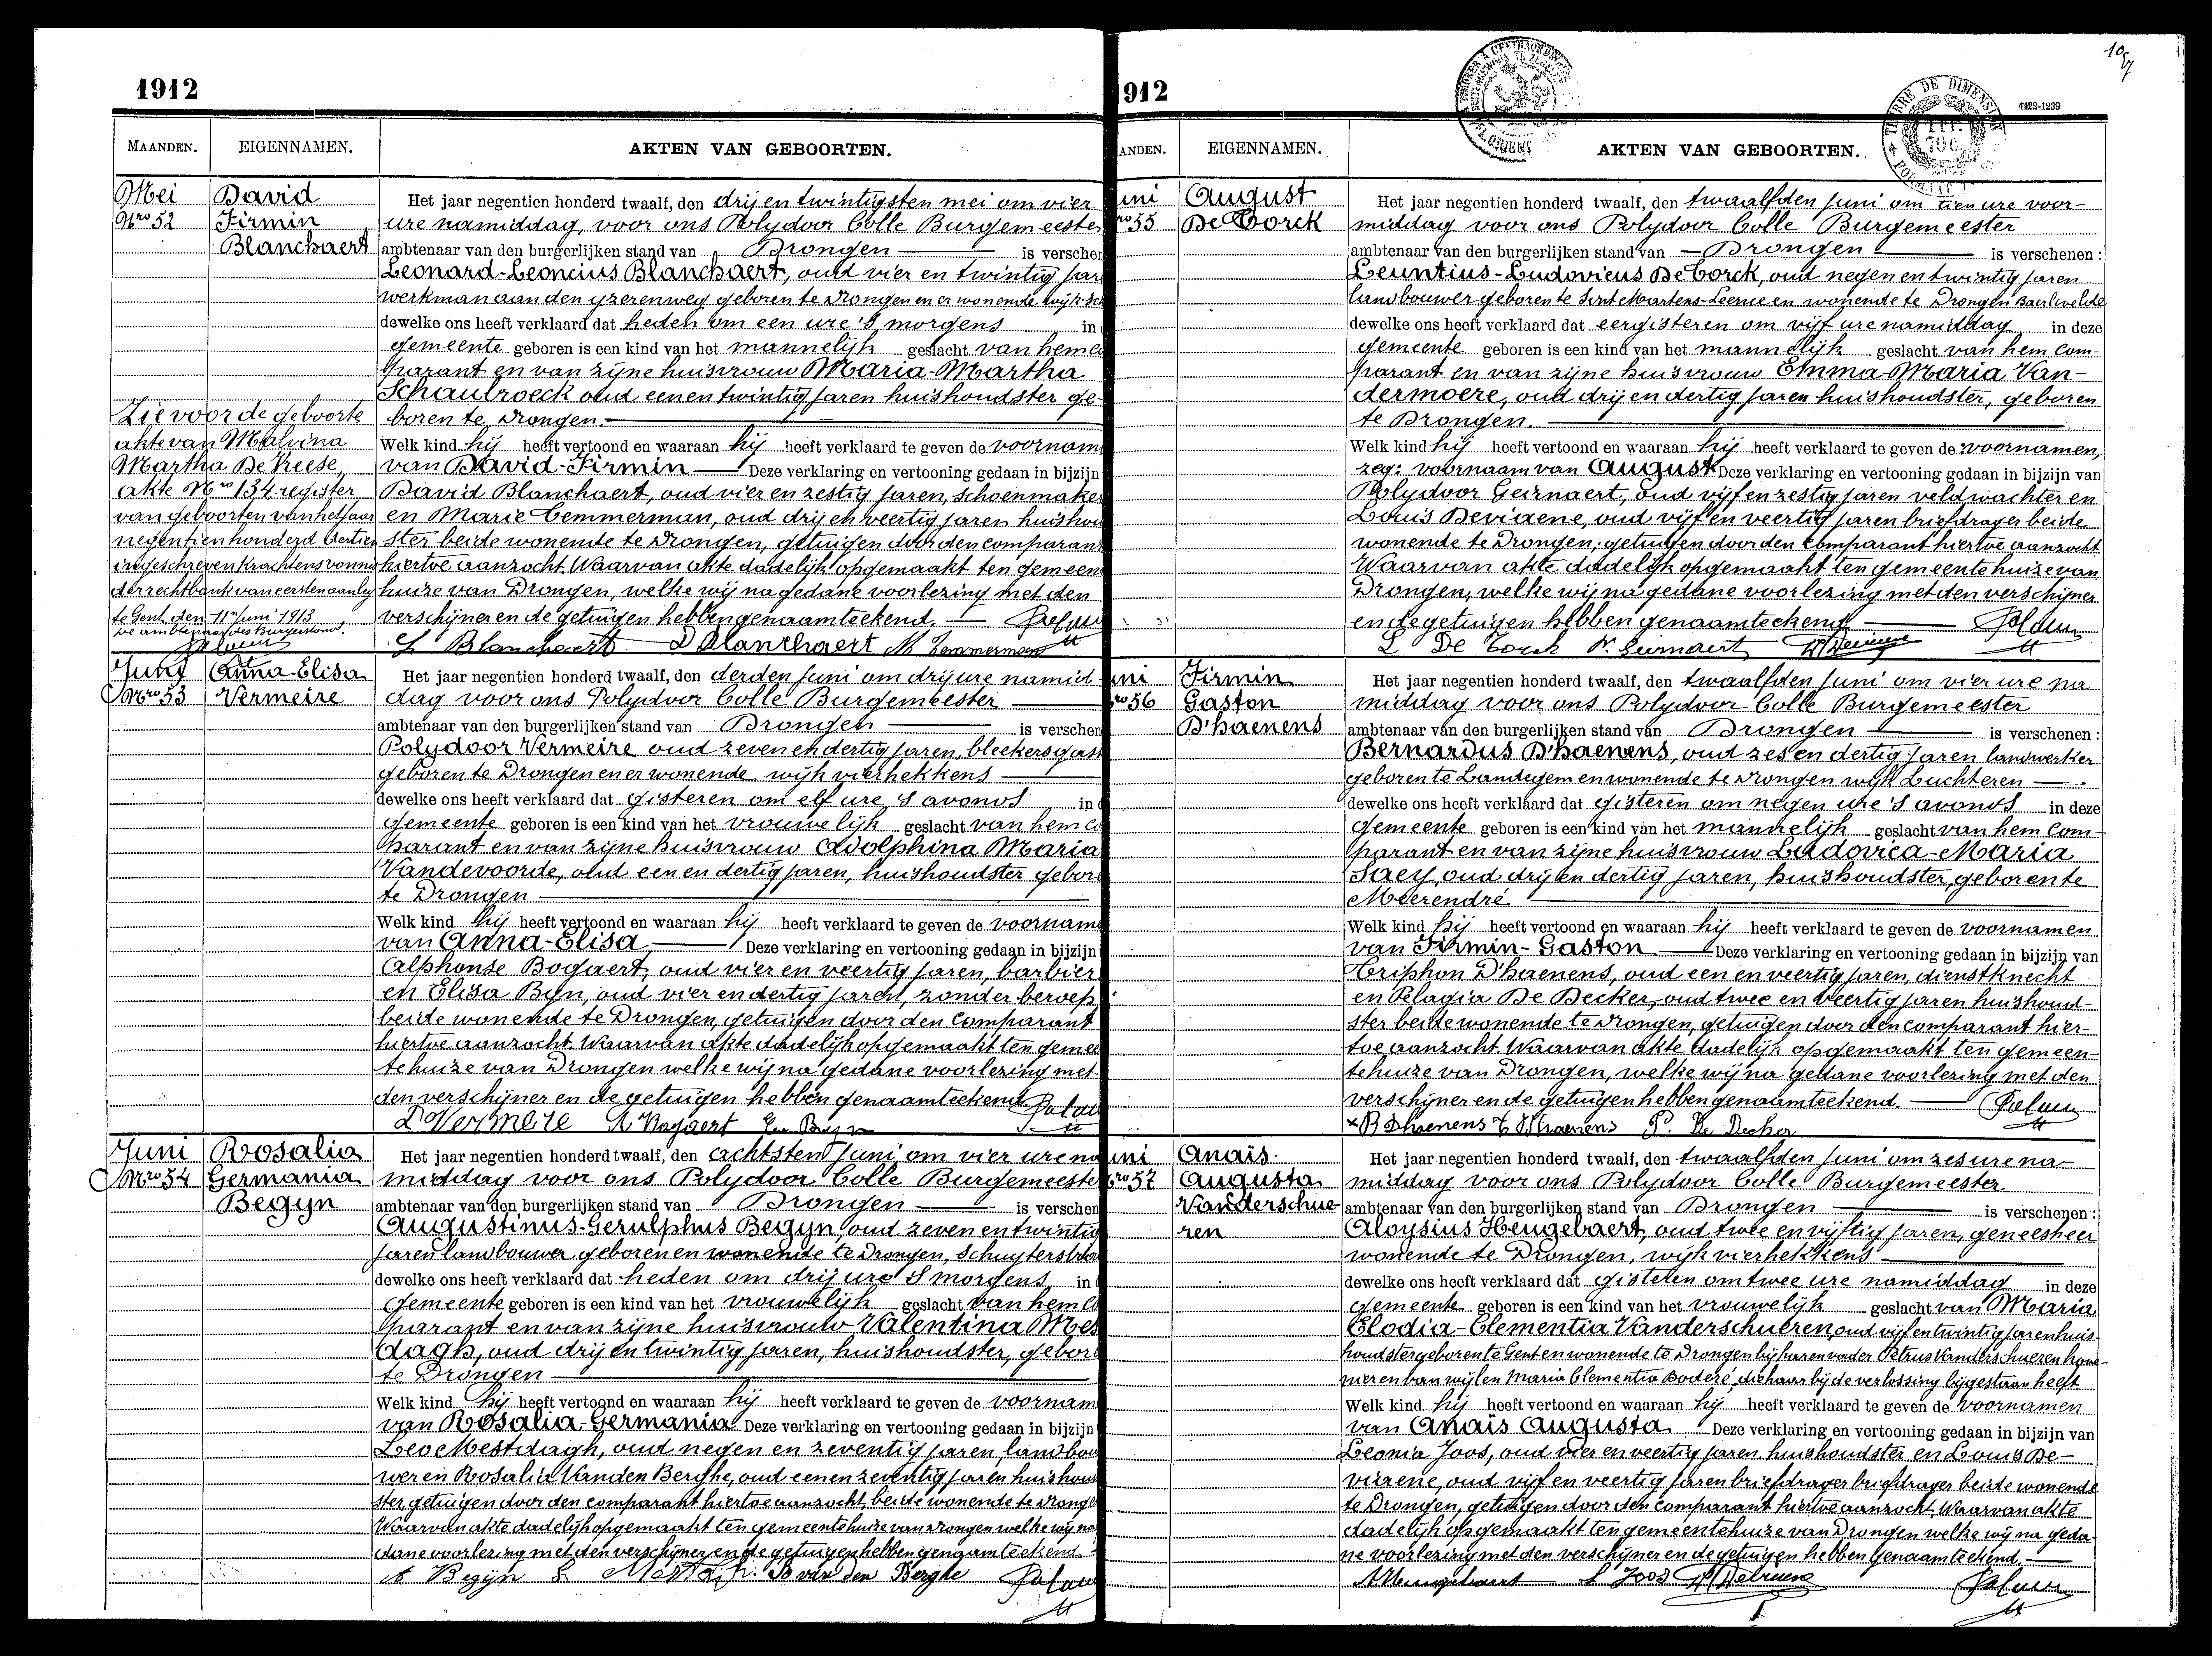 1912
MAANDEN. EIGENNAMEN. AKTEN VAN GEBOORTEN.
Mei
Nro 52
David
Firmin
Blanchaert
Het jaar negentien honderd twaalf, den drij en twintigsten mei om vier
ure namiddag, voor ons Polydoor Colle Burgemeester
ambtenaar van den burgerlijken stand van Drongen is verschen
Leonard-Leoncius Blanchaert, oud vier en twintig jar
werkman aan den yzerenweg geboren te Drongen en er wonende wijk
dewelke ons heeft verklaard dat heden om een ure 's morgens in
gemeente geboren is een kind van het mannelijk geslacht van hem co
parant en van zijne huisvrouw Maria-Martha
Schaubroeck oud een en twintig jaren huishoudster ge-
boren te Drongen.
Welk kind hij heeft vertoond en waaraan hij heeft verklaard te geven de voornam
van David-Firmin Deze verklaring en vertooning gedaan in bijzijn
David Blanchaert, oud vier en zestig jaren, schoenmake
en Marie Cemmerman, oud drij en veertig jaren huishou
ster beide wonende te Drongen, getuigen door den comparan
hiertoe aanzocht Waarvan akte dadelijk opgemaakt ten gemeen
huize van Drongen, welke wij na gedane voorlezing met den
verschijner en de getuigen hebben genaamteekend.
L Blanchaert D Blanchaert M Cemmerman
Zie voor de geboorte
akte van Malvina
Martha De Vreese,
akte Nro 134 register
van geboorten van het jaar
negentien honderd dertien
ingeschreven krachtens vonnis
der rechtbank van eersten aanleg
te Gent den 11n Juni 1913
De ambtenaar des Burgerstand.
Juni
Nro 53
Anna-Elisa
Vermeire
Het jaar negentien honderd twaalf, den derden Juni om drij ure namid-
dag voor ons Polydoor Colle Burgemeester
ambtenaar van den burgerlijken stand van Drongen is verschen
Polydoor Vermeire oud zeven en dertig jaren, bleekersgast
geboren te Drongen en er wonende wijk vierhekkens
dewelke ons heeft verklaard dat gisteren om elf ure 's avonds in
gemeente geboren is een kind van het vrouwelijk geslacht van hem co
parant en van zijne huisvrouw Adolphina Maria
Vandevoorde, oud een en dertig jaren, huishoudster gebor
te Drongen
Welk kind hij heeft vertoond en waaraan hij heeft verklaard te geven de voornam
van Anna-Elisa Deze verklaring en vertooning gedaan in bijzijn
Alphonse Bogaert, oud vier en veertig jaren, barbier
en Elisa Byn, oud vier en dertig jaren, zonder beroep,
beide wonende te Drongen, getuigen door den comparant
hiertoe aanzocht Waarvan akte dadelijk opgemaakt ten gemee
tehuize van Drongen welke wij na gedane voorlezing met
den verschijner en de getuigen hebben genaamteekend.
P Vermeire A Bogaert E. Byn
Juni
Nro 54
Rosalia
Germania
Begyn
Het jaar negentien honderd twaalf, den achtsten Juni om vier ure na
middag voor ons Polydoor Colle Burgemeeste
ambtenaar van den burgerlijken stand van Drongen is verschen
Augustinus-Gerulphus Begyn, oud zeven en twintig
jaren landbouwer geboren en wonende te Drongen, Schuyterstr
dewelke ons heeft verklaard dat heden om drij ure 's morgens in
gemeente geboren is een kind van het vrouwelijk geslacht van hem co
parant en van zijne huisvrouw Valentina Mes
dagh, oud drij en twintig jaren, huishoudster, gebor
te Drongen
Welk kind hij heeft vertoond en waaraan hij heeft verklaard te geven de voornam
van Rosalia-Germania Deze verklaring en vertooning gedaan in bijzijn
Leo Mestdagh, oud negen en zeventig jaren, landbou
wer en Rosalia Vanden Berghe, oud een en zeventig jaren huishou
ster, getuigen door den comparant hiertoe aanzocht, beide wonende te Dronge
Waarvan akte dadelijk opgemaakt ten gemeentehuize van Drongen welke wij na
dane voorlezing met den verschijner en de getuigen hebben genaamteekend
A Begijn L R van den Berghe
912
4422-1239
TIMBRE DE DIMENSION
ANDEN. EIGENNAMEN. AKTEN VAN GEBOORTEN.
uni
ro 55
August
De Corck
Het jaar negentien honderd twaalf, den twaalfden Juni om tien ure voor-
middag voor ons Polydoor Colle Burgemeester
ambtenaar van den burgerlijken stand van Drongen is verschenen :
Leuntius-Ludovicus De Corck, oud negen en twintig jaren
landbouwer geboren te Sint Martens-Leerne en wonende te Drongen Baerlevelde
dewelke ons heeft verklaard dat eergisteren om vijf ure namiddag in deze
gemeente geboren is een kind van het mannelijk geslacht van hem com-
parant en van zijne huisvrouw Emma-Maria Van-
dermoere, oud drij en dertig jaren huishoudster, geboren
te Drongen.
Welk kind hij heeft vertoond en waaraan hij heeft verklaard te geven de voornamen,
zeg: voornaam van August Deze verklaring en vertooning gedaan in bijzijn van
Polydoor Geirnaert, oud vijf en zestig jaren veldwachter en
Louis Deviaene, oud vijf en veertig jaren briefdrager beide
wonende te Drongen, getuigen door den comparant hiertoe aanzocht
Waarvan akte dadelijk opgemaakt ten gemeentehuize van
Drongen, welke wij na gedane voorlezing met den verschijner
en de getuigen hebben genaamteekend
L De Corck P. Geirnaert
uni
ro 56
Firmin
Gaston
D'haenens
Het jaar negentien honderd twaalf, den twaalfden Juni om vier ure na
middag voor ons Polydoor Colle Burgemeester
ambtenaar van den burgerlijken stand van Drongen is verschenen :
Bernardus D'haenens, oud zes en dertig jaren landwerker
geboren te Landegem en wonende te Drongen wijk Luchteren
dewelke ons heeft verklaard dat gisteren om negen ure 's avonds in deze
gemeente geboren is een kind van het mannelijk geslacht van hem com-
parant en van zijne huisvrouw Ludovica-Maria
Saey, oud drij en dertig jaren, huishoudster, geboren te
Meerendré
Welk kind hij heeft vertoond en waaraan hij heeft verklaard te geven de voornamen
van Firmin-Gaston Deze verklaring en vertooning gedaan in bijzijn van
Triphon D'haenens, oud een en veertig jaren, dienstknecht
en Pelagia De Decker, oud twee en veertig jaren huishoud-
ster beide wonende te Drongen, getuigen door den comparant hier-
toe aanzocht Waarvan akte dadelijk opgemaakt ten gemeen-
tehuize van Drongen, welke wij na gedane voorlezing met den
verschijner en de getuigen hebben genaamteekend.
B Dhaenens T Dhaenens P. De Decker
uni
ro 57
Anaïs
Augusta
Vanderschue
ren
Het jaar negentien honderd twaalf, den twaalfden Juni om zes ure na
middag voor ons Polydoor Colle Burgemeester
ambtenaar van den burgerlijken stand van Drongen is verschenen :
Aloysius Heugebaert, oud twee en vijftig jaren, geneesheer
wonende te Drongen, wijk vierhekkens
dewelke ons heeft verklaard dat gisteren om twee ure namiddag in deze
gemeente geboren is een kind van het vrouwelijk geslacht van Maria
Elodia-Clementia Vanderschueren, oud vijf en twintig jaren huis-
houdster geboren te Gent en wonende te Drongen bij haren vader Petrus Vanderschueren hove-
nier en van wijlen Maria Clementia Boderé, die haar bij de verlossing bijgestaan heeft
Welk kind hij heeft vertoond en waaraan hij heeft verklaard te geven de voornamen
van Anaïs Augusta Deze verklaring en vertooning gedaan in bijzijn van
Leonia Joos, oud vier en veertig jaren huishoudster en Louis De-
viaene, oud vijf en veertig jaren briefdrager briefdrager beide wonende
te Drongen, getuigen door den comparant hiertoe aanzocht Waarvan akte
dadelijk opgemaakt ten gemeentehuize van Drongen welke wij na geda
ne voorlezing met den verschijner en de getuigen hebben genaamteekend.
A Heugebaert L Joos